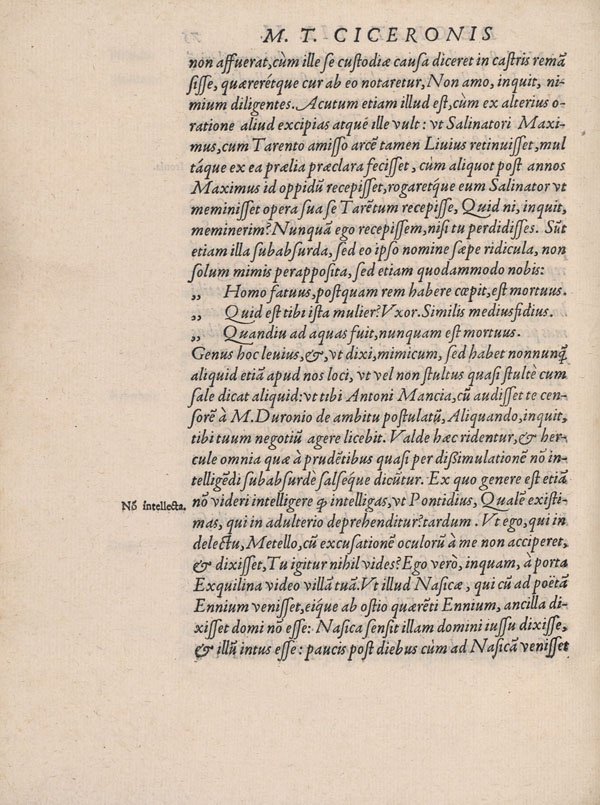 M. T. CICERONIS
non affuerat,cùm ille se custodiæ causa diceret in castris remã
sisse, quæreretque cur ab eo notaretur, Non amo, inquit, ni-
mium diligentes. Acutum etiam illud est,cùm ex alterius o-
ratione aliud excipias atque ille vult: vt Salinatori Maxi-
mus,cum Tarento amisso arcẽ tamen Liuius retinuisset,mul
táque ex ea prælia præclara fecisset, cùm aliquot post annos
Maximus id oppidũ recepisset,rogaretq́ue eum Salinator vt
meminisset opera sua se Tarẽtum recepisse, Quid ni, inquit,
meminerim?Nunquã ego recepissem,nisi tu perdidisses. Sũt
etiam illa subabsurda, sed eo ipso nomine sæpe ridicula, non
solum mimis perapposita, sed etiam quodammodo nobis:
„ Homo fatuus,postquam rem habere cœpit,est mortuus.
„ Quid est tibi ista mulier?Vxor.Similis mediusfidius.
„ Quandiu ad aquas fuit,nunquam est mortuus.
Genus hoc leuius,&,vt dixi,mimicum, sed habet nonnunq̃
aliquid etiã apud nos loci, vt vel non stultus quasi stultè cum
sale dicat aliquid:vt tibi Antoni Mancia,cũ audisset te cen-
sorẽ à M.Duronio de ambitu postulatũ, Aliquando,inquit,
tibi tuum negotiũ agere licebit. Valde hæc ridentur,& her-
cule omnia quæ à prudẽtibus quasi per dissimulationẽ nõ in-
telligẽdi subabsurdè salseque dicũtur. Ex quo genere est etiã
Nõ intellecta.
nõ videri intelligere q̃ intelligas,vt Pontidius, Qualẽ existi-
mas, qui in adulterio deprehenditur?tardum . Vt ego,qui in
delectu,Metello,cũ excusationẽ oculorũ à me non acciperet,
& dixisset,Tu igitur nihil vides?Ego verò, inquam, à porta
Exquilina video villã tuã.Vt illud Nasicæ, qui cũ ad poëtã
Ennium venisset,eique ab ostio quærẽti Ennium, ancilla di-
xisset domi nõ esse: Nasica sensit illam domini iussu dixisse,
& illũ intus esse: paucis post diebus cùm ad Nasicã venisset